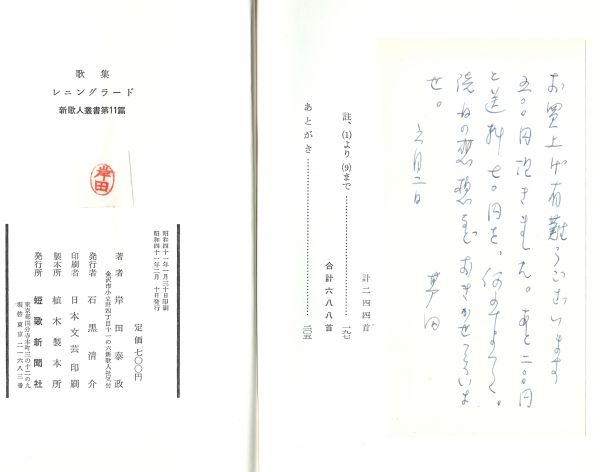 お買上げ有難うございます
五〇〇円頂きました。あと二〇〇円
と送料七〇円を、
せ。
六月二日
計二四四首
註、⑴より⑼まで…………一九七
合計六八八首
あとがき…………二〇五
歌集
レニングラード
新歌人叢書第11篇
岸田
昭和四十一年一月三十日印刷
昭和四十一年二月十日発行
定価七〇〇円
著者 岸田泰政
金沢市小立野四丁目十一の六新歌人社気付
発行者 石黒清介
印刷者 日本文芸印刷
製本所 植木製本所
発行所 短歌新聞社
振替東京二一六八三番